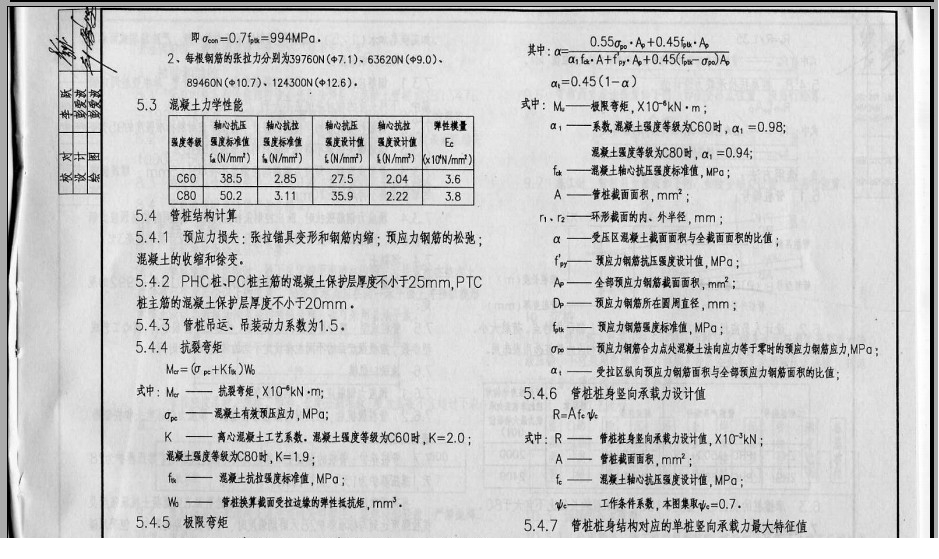 即 σcon=0.7fptk=994MPa。
2、每根钢筋的张拉力分别为39760N(Φ7.1)、63620N(Φ9.0)、
89460N(Φ10.7)、124300N(Φ12.6)。
5.3 混凝土力学性能
强度等级 轴心抗压强度标准值 fck(N/mm²) 轴心抗拉强度标准值 ftk(N/mm²) 轴心抗压强度设计值 fc(N/mm²) 轴心抗拉强度设计值 ft(N/mm²) 弹性模量 Ec (x10⁴N/mm²)
C60 38.5 2.85 27.5 2.04 3.6
C80 50.2 3.11 35.9 2.22 3.8
5.4 管桩结构计算
5.4.1 预应力损失：张拉锚具变形和钢筋内缩；预应力钢筋的松弛；
混凝土的收缩和徐变。
5.4.2 PHC桩、PC桩主筋的混凝土保护层厚度不小于25mm,PTC
桩主筋的混凝土保护层厚度不小于20mm。
5.4.3 管桩吊运、吊装动力系数为1.5。
5.4.4 抗裂弯矩
Mcr=(σpc+Kftk)W₀
式中：Mcr —— 抗裂弯矩,X10⁻⁶kN·m;
σpc —— 混凝土有效预压应力,MPa;
K —— 离心混凝土工艺系数。混凝土强度等级为C60时,K=2.0;
混凝土强度等级为C80时,K=1.9;
ftk —— 混凝土抗拉强度标准值,MPa;
W₀ —— 管桩换算截面受拉边缘的弹性抵抗矩,mm³。
5.4.5 极限弯矩
其中：α=(0.55σpo·Ap+0.45fptk·Ap)/(α₁fck·A+f'py·Ap+0.45(fptk−σpo)Ap)
αt=0.45(1−α)
式中：Mu —— 极限弯矩,X10⁻⁶kN·m;
α₁ —— 系数,混凝土强度等级为C60时,α₁=0.98;
混凝土强度等级为C80时,α₁=0.94;
fck —— 混凝土轴心抗压强度标准值,MPa;
A —— 管桩截面面积,mm²;
r₁、r₂ —— 环形截面的内、外半径,mm;
α —— 受压区混凝土截面面积与全截面面积的比值;
f'py —— 预应力钢筋抗压强度设计值,MPa;
Ap —— 全部预应力钢筋截面面积,mm²;
Dp —— 预应力钢筋所在圆周直径,mm;
fptk —— 预应力钢筋强度标准值,MPa;
σpo —— 预应力钢筋合力点处混凝土法向应力等于零时的预应力钢筋应力,MPa;
αt —— 受拉区纵向预应力钢筋面积与全部预应力钢筋面积的比值;
5.4.6 管桩桩身竖向承载力设计值
R=Afcψc
式中：R —— 管桩桩身竖向承载力设计值,X10⁻³kN;
A —— 管桩截面面积,mm²;
fc —— 混凝土轴心抗压强度设计值,MPa;
ψc —— 工作条件系数,本图集取ψc=0.7。
5.4.7 管桩桩身结构对应的单桩竖向承载力最大特征值
校对
设计
绘图